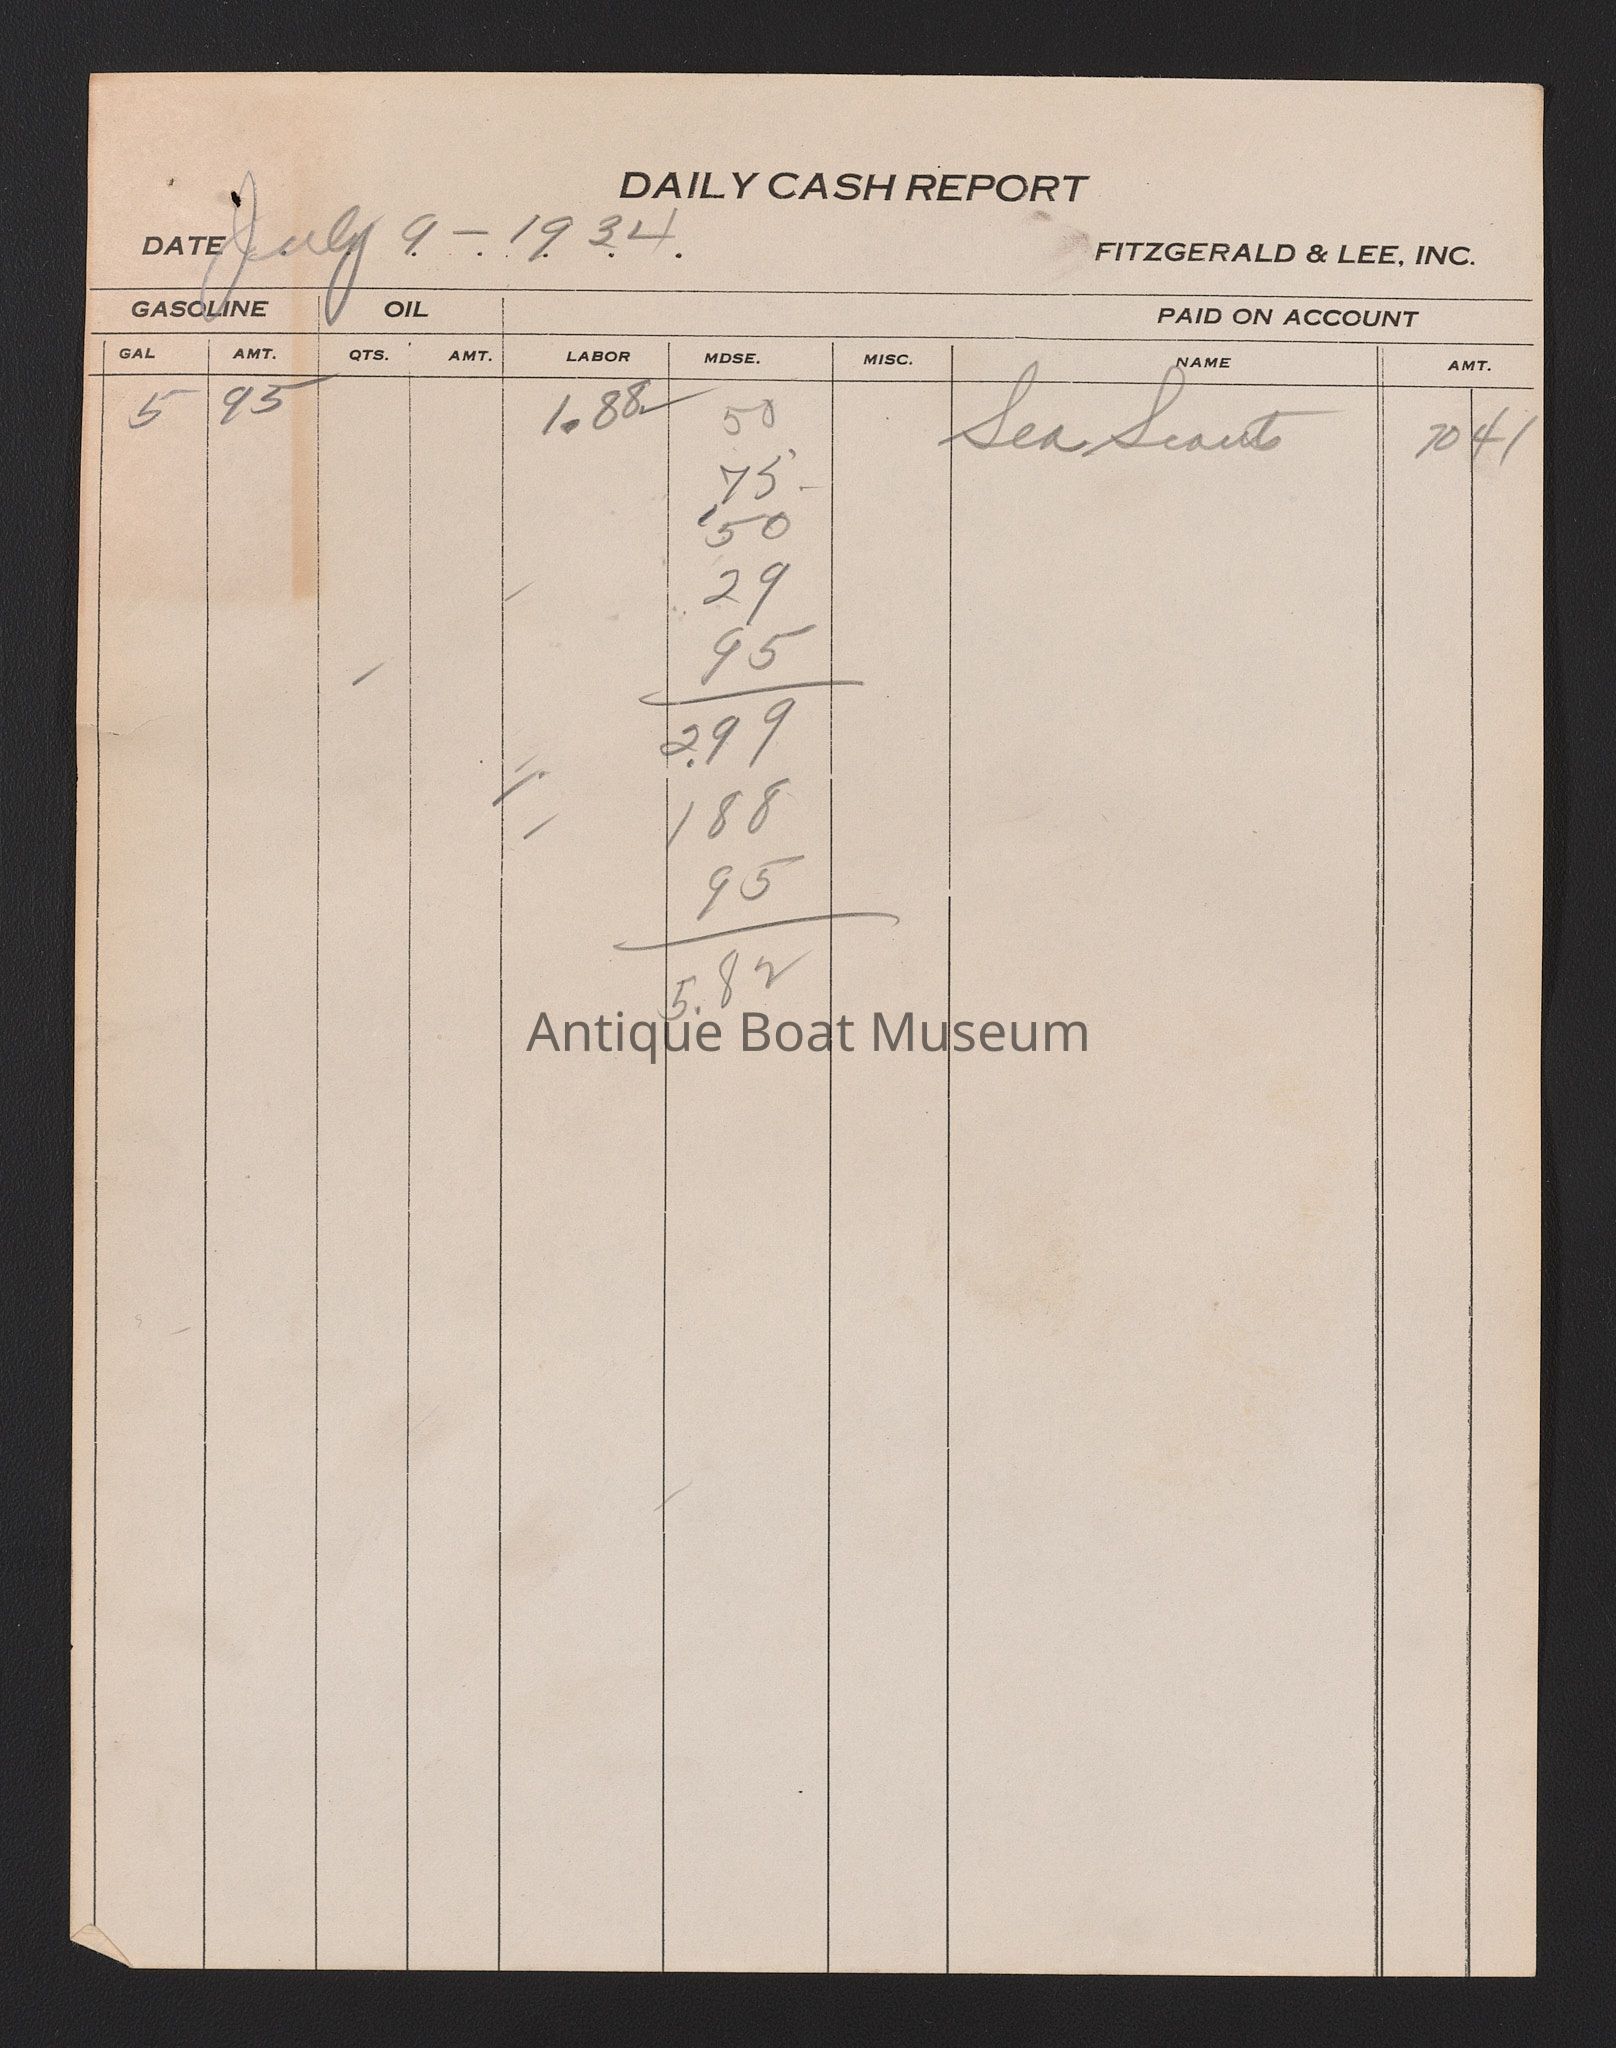 DAILY CASH REPORT
DATE July 9 - 1934.
FITZGERALD & LEE, INC.
GASOLINE OIL PAID ON ACCOUNT
GAL AMT. QTS. AMT. LABOR MDSE. MISC. NAME AMT.
5 95 1.88 50 Sea Scouts 70 41
75
50
29
95
2.99
188
95
5.82
Antique Boat Museum